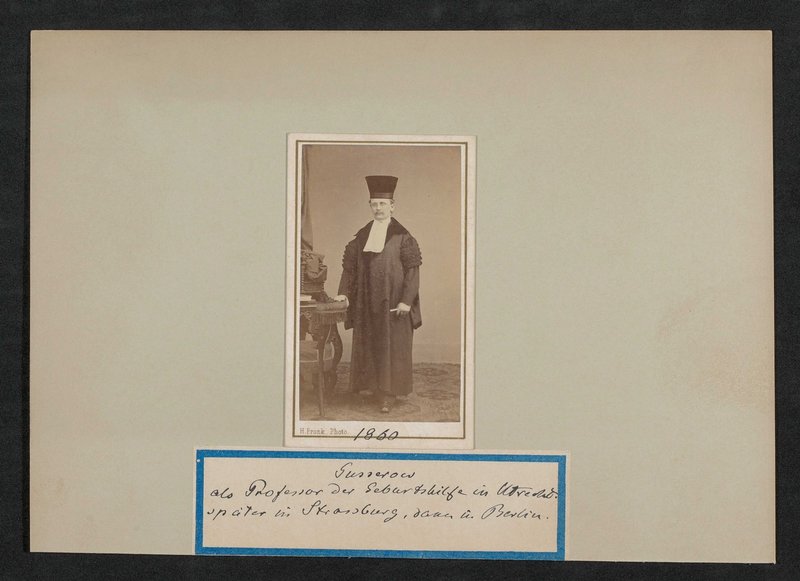 H. Frank Photo.
1860
Gusserow
als Professor der Geburtshilfe in Utrecht.
später in Strassburg, dann in Berlin.